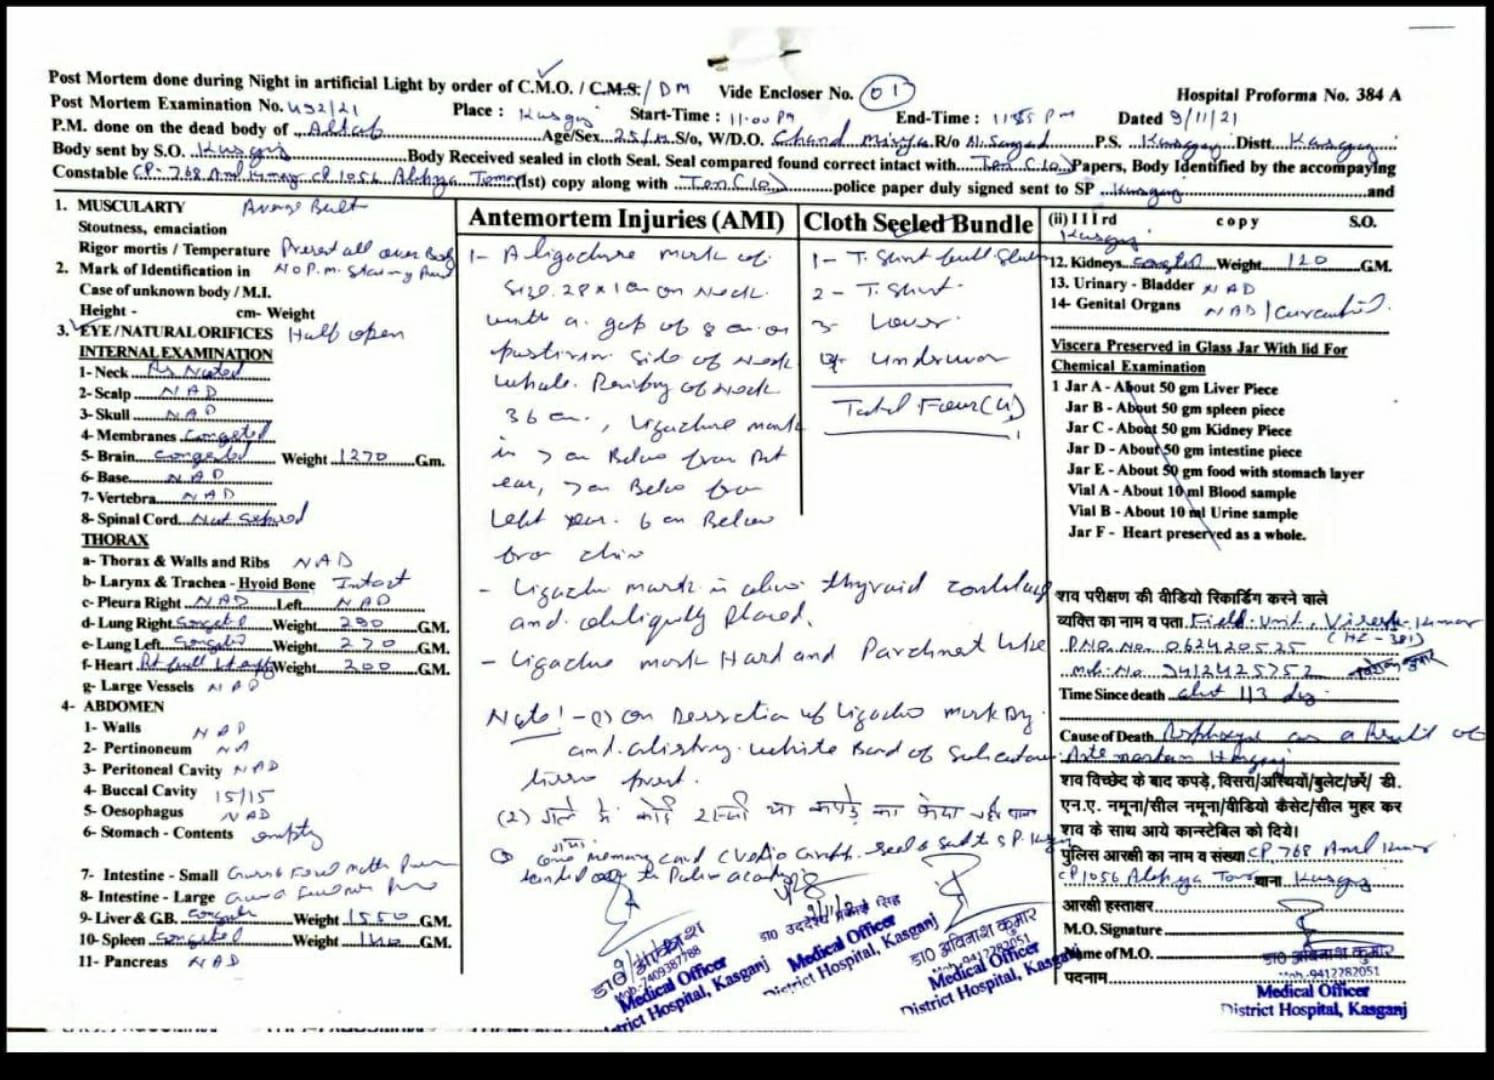 Post Mortem done during Night in artificial Light by order of C.M.O. / C.M.S. / DM Vide Encloser No. 01 Hospital Proforma No. 384 A
Post Mortem Examination No. 492/21 Place : Kasganj Start-Time : 11:00 PM End-Time : 11:55 PM Dated 9/11/21
P.M. done on the dead body of Altab Age/Sex 25/M S/o, W/D.O. Chand miya R/o P.S. Kasganj Distt. Kasganj
Body sent by S.O. Kasganj Body Received sealed in cloth Seal. Seal compared found correct intact with Ten (10) Papers, Body Identified by the accompaying
Constable CP-768 Anil Kumar CP 1056 (Ist) copy along with Ten (10) police paper duly signed sent to SP Kasganj and
1. MUSCULARTY Average Built
Stoutness, emaciation
Rigor mortis / Temperature Present all over Body
2. Mark of Identification in No P.m.
Case of unknown body / M.I.
Height - cm- Weight
3. EYE/NATURAL ORIFICES Half open
INTERNAL EXAMINATION
1- Neck As Noted
2- Scalp NAD
3- Skull NAD
4- Membranes Congested
5- Brain congested Weight 1270 Gm.
6- Base NAD
7- Vertebra NAD
8- Spinal Cord Not
THORAX
a- Thorax & Walls and Ribs NAD
b- Larynx & Trachea - Hyoid Bone Intact
c- Pleura Right NAD Left NAD
d- Lung Right Congested Weight 290 GM.
e- Lung Left Congested Weight 270 GM.
f- Heart Rt full Lt empty Weight 200 GM.
g- Large Vessels NAD
4- ABDOMEN
1- Walls NAD
2- Pertinoneum NA
3- Peritoneal Cavity NAD
4- Buccal Cavity 15/15
5- Oesophagus NAD
6- Stomach - Contents empty
7- Intestine - Small
8- Intestine - Large
9- Liver & G.B. congested Weight 1550 GM.
10- Spleen Congested Weight 140 GM.
11- Pancreas NAD
Antemortem Injuries (AMI)
1- A ligature mark of
size 28 x 1 cm on Neck
with a gap of 8 cm on
side of Neck
whole of Neck
36 cm, Ligature mark
is 7 cm Below from Rt
ear, 7 cm Below from
Left ear. 6 cm Below
from chin
- Ligature mark is above thyroid
and obliquely placed.
- Ligature mark Hard and Parchment like
Note! - (1) on Dissection of Ligature mark
and white Band of
tissue present.
(2) गले में कोई रस्सी या कपड़े का
(3) one memory card sealed
Cloth Seeled Bundle
1- T. Shirt full
2- T. Shirt
3- Lower
4- Underwear
Total Four (4)
(ii) I I I rd copy S.O.
Kasganj
12. Kidneys congested Weight 120 GM.
13. Urinary - Bladder NAD
14- Genital Organs NAD
Viscera Preserved in Glass Jar With lid For
Chemical Examination
1 Jar A - About 50 gm Liver Piece
Jar B - About 50 gm spleen piece
Jar C - About 50 gm Kidney Piece
Jar D - About 50 gm intestine piece
Jar E - About 50 gm food with stomach layer
Vial A - About 10 ml Blood sample
Vial B - About 10 ml Urine sample
Jar F - Heart preserved as a whole.
शव परीक्षण की वीडियो रिकार्डिंग करने वाले
व्यक्ति का नाम व पता Field Unit,
PNO. No. 062420525
mob. No. 9412425752
Time Since death about
Cause of Death Asphyxia as a Result of
Ante mortem Hanging
शव विच्छेद के बाद कपड़े, विसरा/अस्थियों/बुलेट/छर्रे/ डी.
एन.ए. नमूना/सील नमूना/वीडियो कैसेट/सील मुहर कर
शव के साथ आये कान्स्टेबिल को दिये।
पुलिस आरक्षी का नाम व संख्या CP 768 Anil Kumar
CP 1056 थाना Kasganj
आरक्षी हस्ताक्षर
M.O. Signature
Name of M.O. डा0 अविनाश कुमार
पदनाम Mob.-9412782051
Medical Officer
District Hospital, Kasganj
Mob.-7409387788
Medical Officer
District Hospital, Kasganj
9/11/21
Medical Officer
District Hospital, Kasganj
डा0 अविनाश कुमार
Mob.-9412782051
Medical Officer
District Hospital, Kasganj